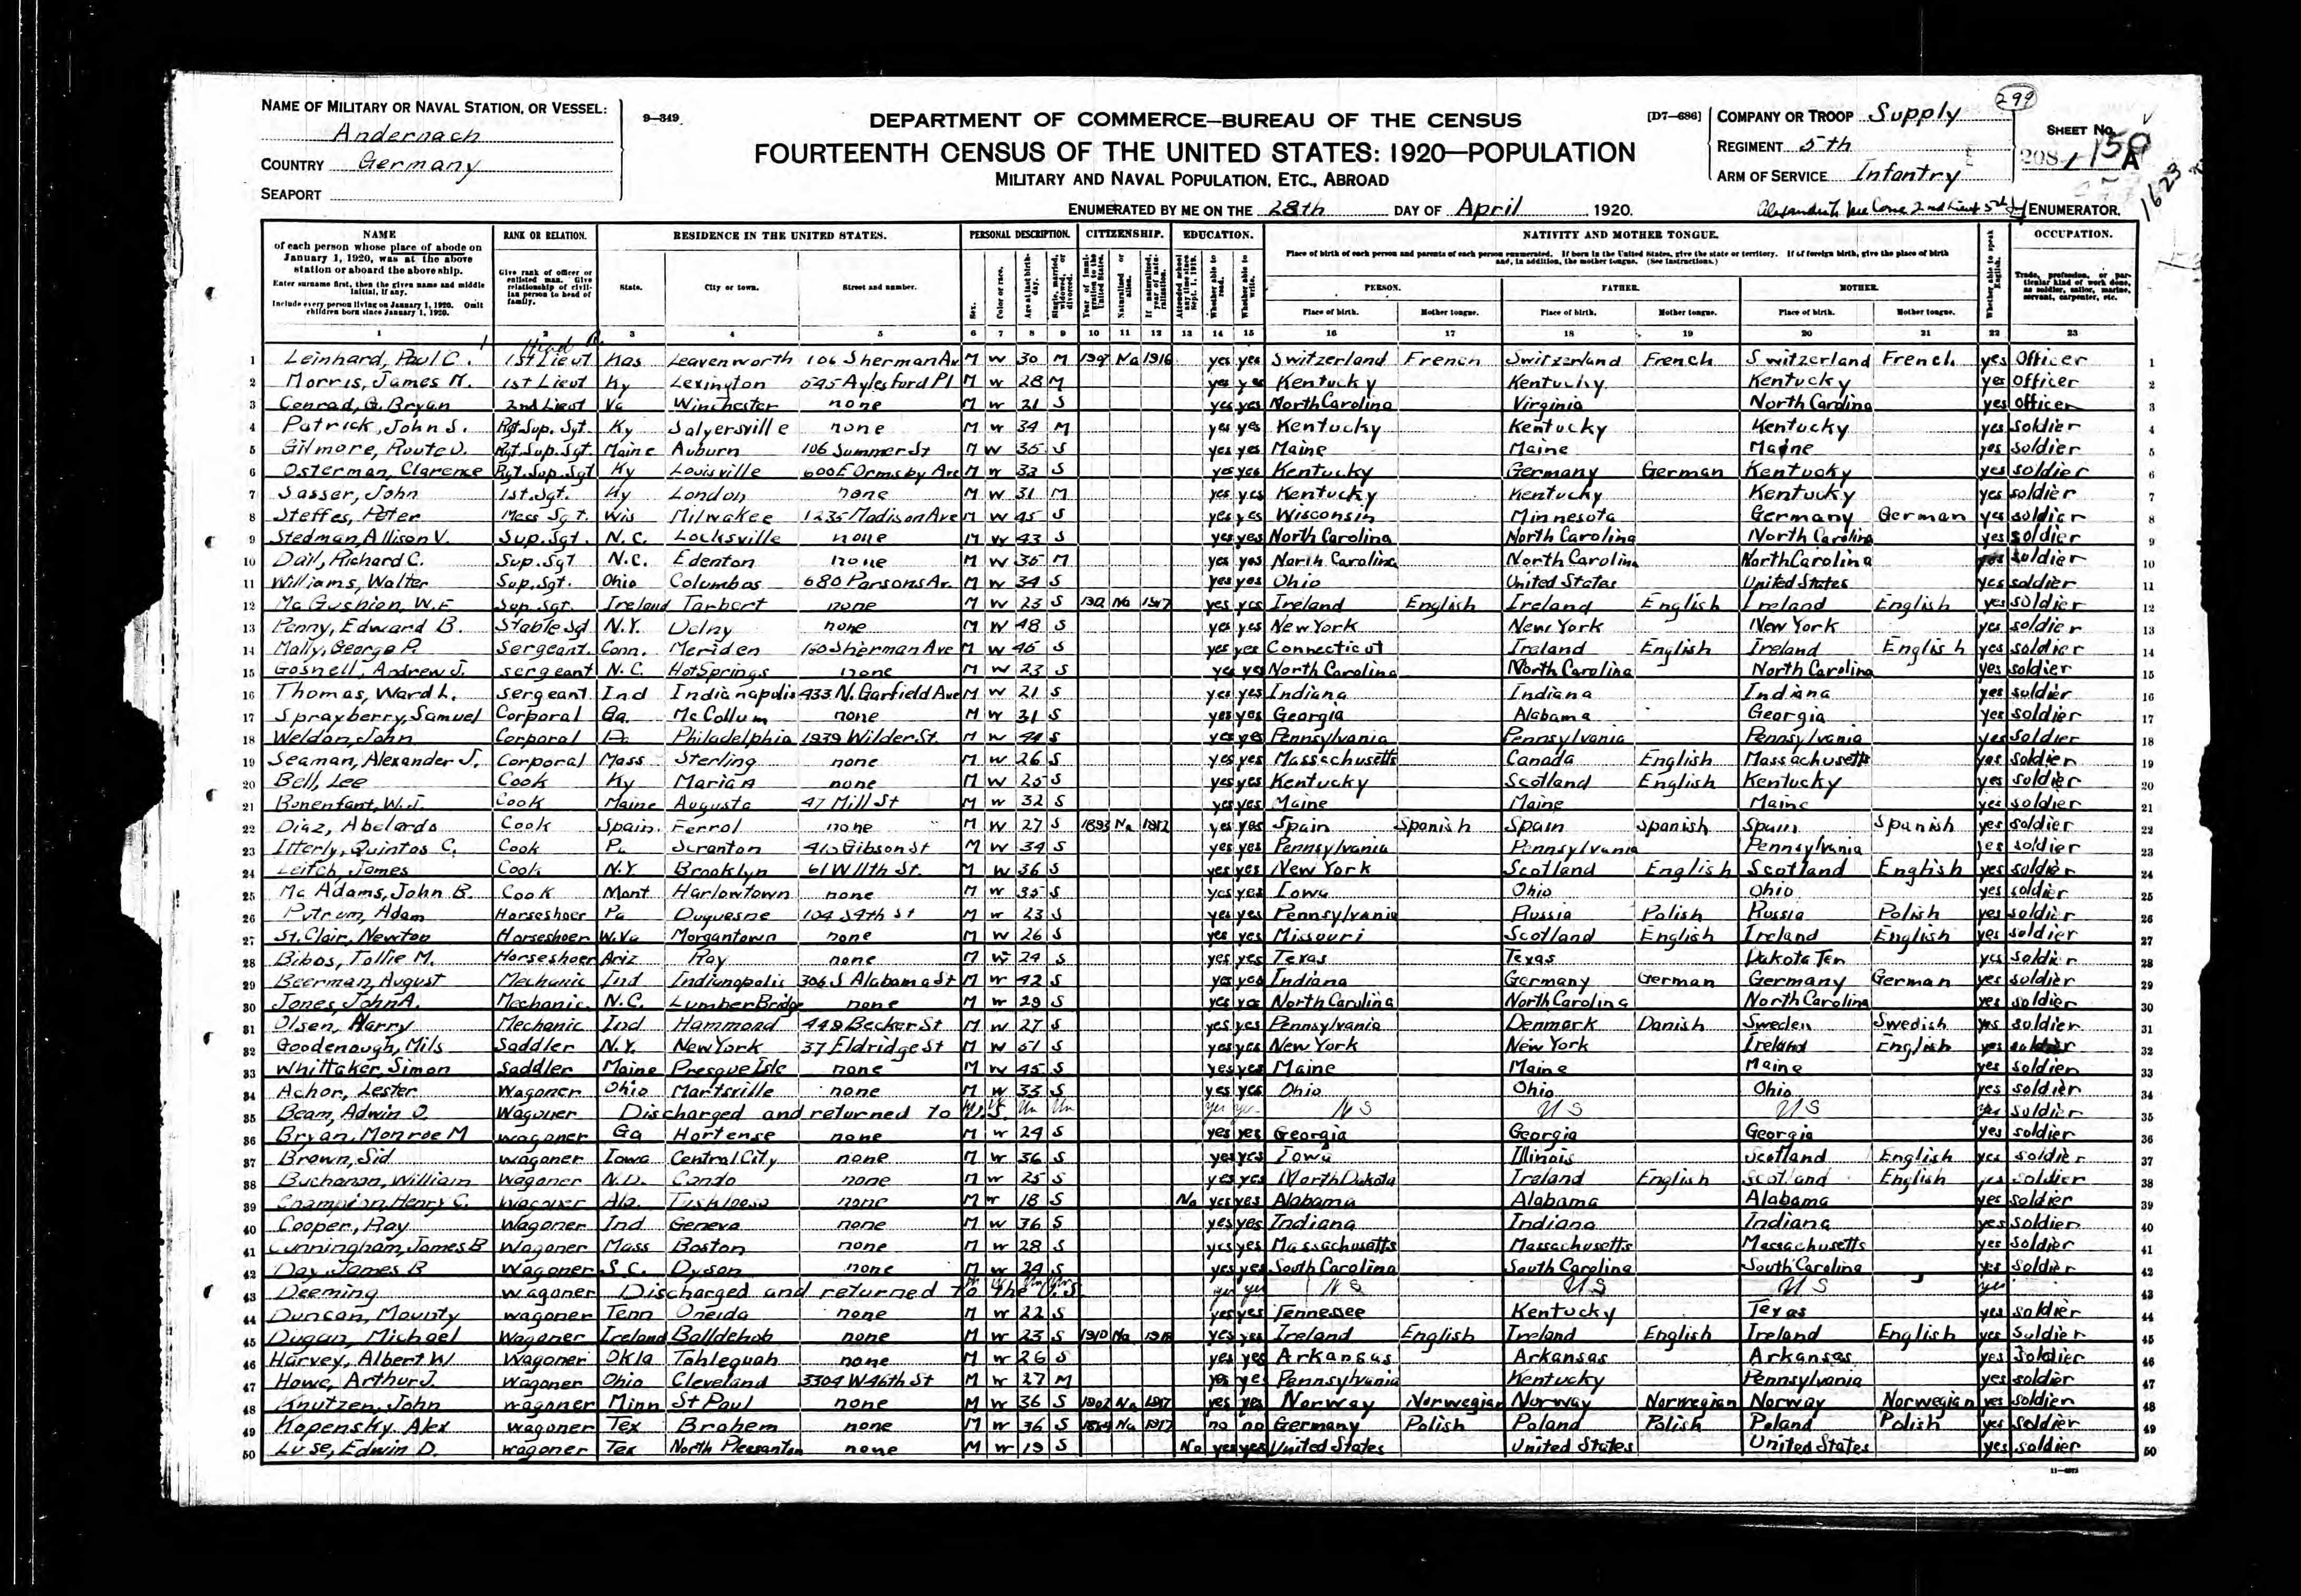 NAME OF MILITARY OR NAVAL STATION, OR VESSEL:
Andernach
COUNTRY Germany
SEAPORT
9—349
DEPARTMENT OF COMMERCE—BUREAU OF THE CENSUS
FOURTEENTH CENSUS OF THE UNITED STATES: 1920—POPULATION
MILITARY AND NAVAL POPULATION, ETC., ABROAD
ENUMERATED BY ME ON THE 28th DAY OF April, 1920.
[D7—686]
COMPANY OR TROOP Supply
REGIMENT 5th
ARM OF SERVICE Infantry
299
SHEET No.
208 150 A
1623
2nd Lieut 5th ENUMERATOR.
NAME of each person whose place of abode on January 1, 1920, was at the above station or aboard the above ship. Enter surname first, then the given name and middle initial, if any. Include every person living on January 1, 1920. Omit children born since January 1, 1920.
RANK OR RELATION. Give rank of officer or enlisted man. Give relationship of civilian person to head of family.
RESIDENCE IN THE UNITED STATES. State. City or town. Street and number.
PERSONAL DESCRIPTION. Sex. Color or race. Age at last birthday. Single, married, widowed, or divorced.
CITIZENSHIP. Year of immigration to the United States. Naturalized or alien. If naturalized, year of naturalization.
EDUCATION. Attended school any time since Sept. 1, 1919. Whether able to read. Whether able to write.
NATIVITY AND MOTHER TONGUE.
Place of birth of each person and parents of each person enumerated. If born in the United States, give the state or territory. If of foreign birth, give the place of birth and, in addition, the mother tongue. (See Instructions.)
PERSON. FATHER. MOTHER.
Place of birth. Mother tongue. Place of birth. Mother tongue. Place of birth. Mother tongue.
Whether able to speak English.
OCCUPATION. Trade, profession, or particular kind of work done, as soldier, sailor, marine, servant, carpenter, etc.
1 2 3 4 5 6 7 8 9 10 11 12 13 14 15 16 17 18 19 20 21 22 23
Head
1 Leinhard, Paul C. 1st Lieut Kas Leavenworth 106 Sherman Av M W 30 M 1907 Na 1916 yes yes Switzerland French Switzerland French Switzerland French yes Officer 1
2 Morris, James H. 1st Lieut Ky Lexington 545 Aylesford Pl M W 28 M yes yes Kentucky Kentucky Kentucky yes Officer 2
3 Conrad, G. Bryan 2nd Lieut Va Winchester none M W 21 S yes yes North Carolina Virginia North Carolina yes Officer 3
4 Patrick, John S. Rgt. Sup. Sgt. Ky Salyersville none M W 34 M yes yes Kentucky Kentucky Kentucky yes soldier 4
5 Gilmore, Route D. Rgt. Sup. Sgt. Maine Auburn 106 Summer St M W 35 S yes yes Maine Maine Maine yes soldier 5
6 Osterman, Clarence Rgt. Sup. Sgt Ky Louisville 600 E Ormsby Ave M W 33 S yes yes Kentucky Germany German Kentucky yes soldier 6
7 Sasser, John 1st. Sgt. Ky London none M W 31 M yes yes Kentucky Kentucky Kentucky yes soldier 7
8 Steffes, Peter Mess Sgt. Wis Milwakee 1235 Madison Ave M W 45 S yes yes Wisconsin Minnesota Germany German yes soldier 8
9 Stedman, Allison V. Sup. Sgt. N.C. Locksville none M W 43 S yes yes North Carolina North Carolina North Carolina yes soldier 9
10 Dail, Richard C. Sup. Sgt N.C. Edenton none M W 35 M yes yes North Carolina North Carolina North Carolina yes soldier 10
11 Williams, Walter Sup. Sgt. Ohio Columbas 680 Parsons Av. M W 34 S yes yes Ohio United States United States yes soldier 11
12 Mc Gushion, W.E Sup. Sgt. Ireland Tarbert none M W 23 S 1912 Na 1917 yes yes Ireland English Ireland English Ireland English yes soldier 12
13 Penny, Edward B. Stable Sgt N.Y. none M W 48 S yes yes New York New York New York yes soldier 13
14 Mally, George P. Sergeant. Conn. Meriden 150 Sherman Ave M W 45 S yes yes Connecticut Ireland English Ireland English yes soldier 14
15 Gosnell, Andrew J. sergeant N.C. Hot Springs none M W 23 S yes yes North Carolina North Carolina North Carolina yes soldier 15
16 Thomas, Ward L. sergeant Ind Indianapolis 433 N. Garfield Ave M W 21 S yes yes Indiana Indiana Indiana yes soldier 16
17 Sprayberry, Samuel Corporal Ga. McCollum none M W 31 S yes yes Georgia Alabama Georgia yes soldier 17
18 Weldon, John Corporal Pa Philadelphia 1939 Wilder St. M W 44 S yes yes Pennsylvania Pennsylvania Pennsylvania yes soldier 18
19 Seaman, Alexander J. Corporal Mass Sterling none M W 26 S yes yes Massachusetts Canada English Massachusetts yes soldier 19
20 Bell, Lee Cook Ky Marian none M W 25 S yes yes Kentucky Scotland English Kentucky yes soldier 20
21 Bonenfant, W.J. Cook Maine Augusta 47 Mill St M W 32 S yes yes Maine Maine Maine yes soldier 21
22 Diaz, Abelardo Cook Spain. Ferrol none M W 27 S 1893 Na 1917 yes yes Spain Spanish Spain Spanish Spain Spanish yes soldier 22
23 Itterly, Quintos C. Cook Pa Scranton 415 Gibson St M W 34 S yes yes Pennsylvania Pennsylvania Pennsylvania yes soldier 23
24 Leitch, James Cook N.Y. Brooklyn 61 W 11th St. M W 36 S yes yes New York Scotland English Scotland English yes soldier 24
25 Mc Adams, John B. Cook Mont Harlowtown none M W 35 S yes yes Iowa Ohio Ohio yes soldier 25
26 Putrum, Adam Horseshoer Pa Duquesne 104 S 9th St M W 23 S yes yes Pennsylvania Russia Polish Russia Polish yes soldier 26
27 St. Clair, Newton Horseshoer W. Va Morgantown none M W 26 S yes yes Missouri Scotland English Ireland English yes soldier 27
28 Bibos, Tollie M. Horseshoer Ariz Ray none M W 24 S yes yes Texas Texas Dakota Ter yes soldier 28
29 Beerman, August Mechanic Ind Indianapolis 306 S Alabama St M W 42 S yes yes Indiana Germany German Germany German yes soldier 29
30 Jones, John A. Mechanic N.C. Lumber Bridge none M W 29 S yes yes North Carolina North Carolina North Carolina yes soldier 30
31 Olsen, Harry Mechanic Ind Hammond 449 Becker St M W 27 S yes yes Pennsylvania Denmark Danish Sweden Swedish yes soldier 31
32 Goodenough, Mils Saddler N.Y. New York 37 Eldridge St M W 51 S yes yes New York New York Ireland English yes soldier 32
33 Whittaker, Simon Saddler Maine Presque Isle none M W 45 S yes yes Maine Maine Maine yes soldier 33
34 Achor, Lester Wagoner Ohio Martsville none M W 33 S yes yes Ohio Ohio Ohio yes soldier 34
35 Beam, Adwin O. Wagoner Discharged and returned to U.S. Un Un yes yes US US US yes soldier 35
36 Bryan, Monroe M wagoner Ga Hortense none M W 24 S yes yes Georgia Georgia Georgia yes soldier 36
37 Brown, Sid wagoner Iowa Central City none M W 36 S yes yes Iowa Illinois Scotland English yes soldier 37
38 Buchanan, William Wagoner N.D. Cando none M W 25 S yes yes North Dakota Ireland English Scotland English yes soldier 38
39 Champion, Henry C. Wagoner Ala. Tuskloosa none M W 18 S No yes yes Alabama Alabama Alabama yes soldier 39
40 Cooper, Ray Wagoner Ind Geneva none M W 36 S yes yes Indiana Indiana Indiana yes soldier 40
41 Cunningham, James B Wagoner Mass Boston none M W 28 S yes yes Massachusetts Massachusetts Massachusetts yes soldier 41
42 Day, James B Wagoner S.C. Dyson none M W 24 S yes yes South Carolina South Carolina South Carolina yes soldier 42
43 Deeming wagoner Discharged and returned to the U.S. yes yes US US US yes 43
44 Duncan, Mounty wagoner Tenn Oneida none M W 22 S yes yes Tennessee Kentucky Texas yes soldier 44
45 Dugan, Michael Wagoner Ireland Balldehob none M W 23 S 1910 Na 1918 yes yes Ireland English Ireland English Ireland English yes soldier 45
46 Harvey, Albert W Wagoner Okla Tahlequah none M W 26 S yes yes Arkansas Arkansas Arkansas yes soldier 46
47 Howe, Arthur J. wagoner Ohio Cleveland 3304 W 46th St M W 27 M yes yes Pennsylvania Kentucky Pennsylvania yes soldier 47
48 Knutzen, John wagoner Minn St Paul none M W 36 S 1902 Na 1917 yes yes Norway Norwegian Norway Norwegian Norway Norwegian yes soldier 48
49 Kopensky, Alex wagoner Tex Brohem none M W 36 S Na 1917 no no Germany Polish Poland Polish Poland Polish yes soldier 49
50 Luse, Edwin D. wagoner Tex North Pleasanton none M W 19 S No yes yes United States United States United States yes soldier 50